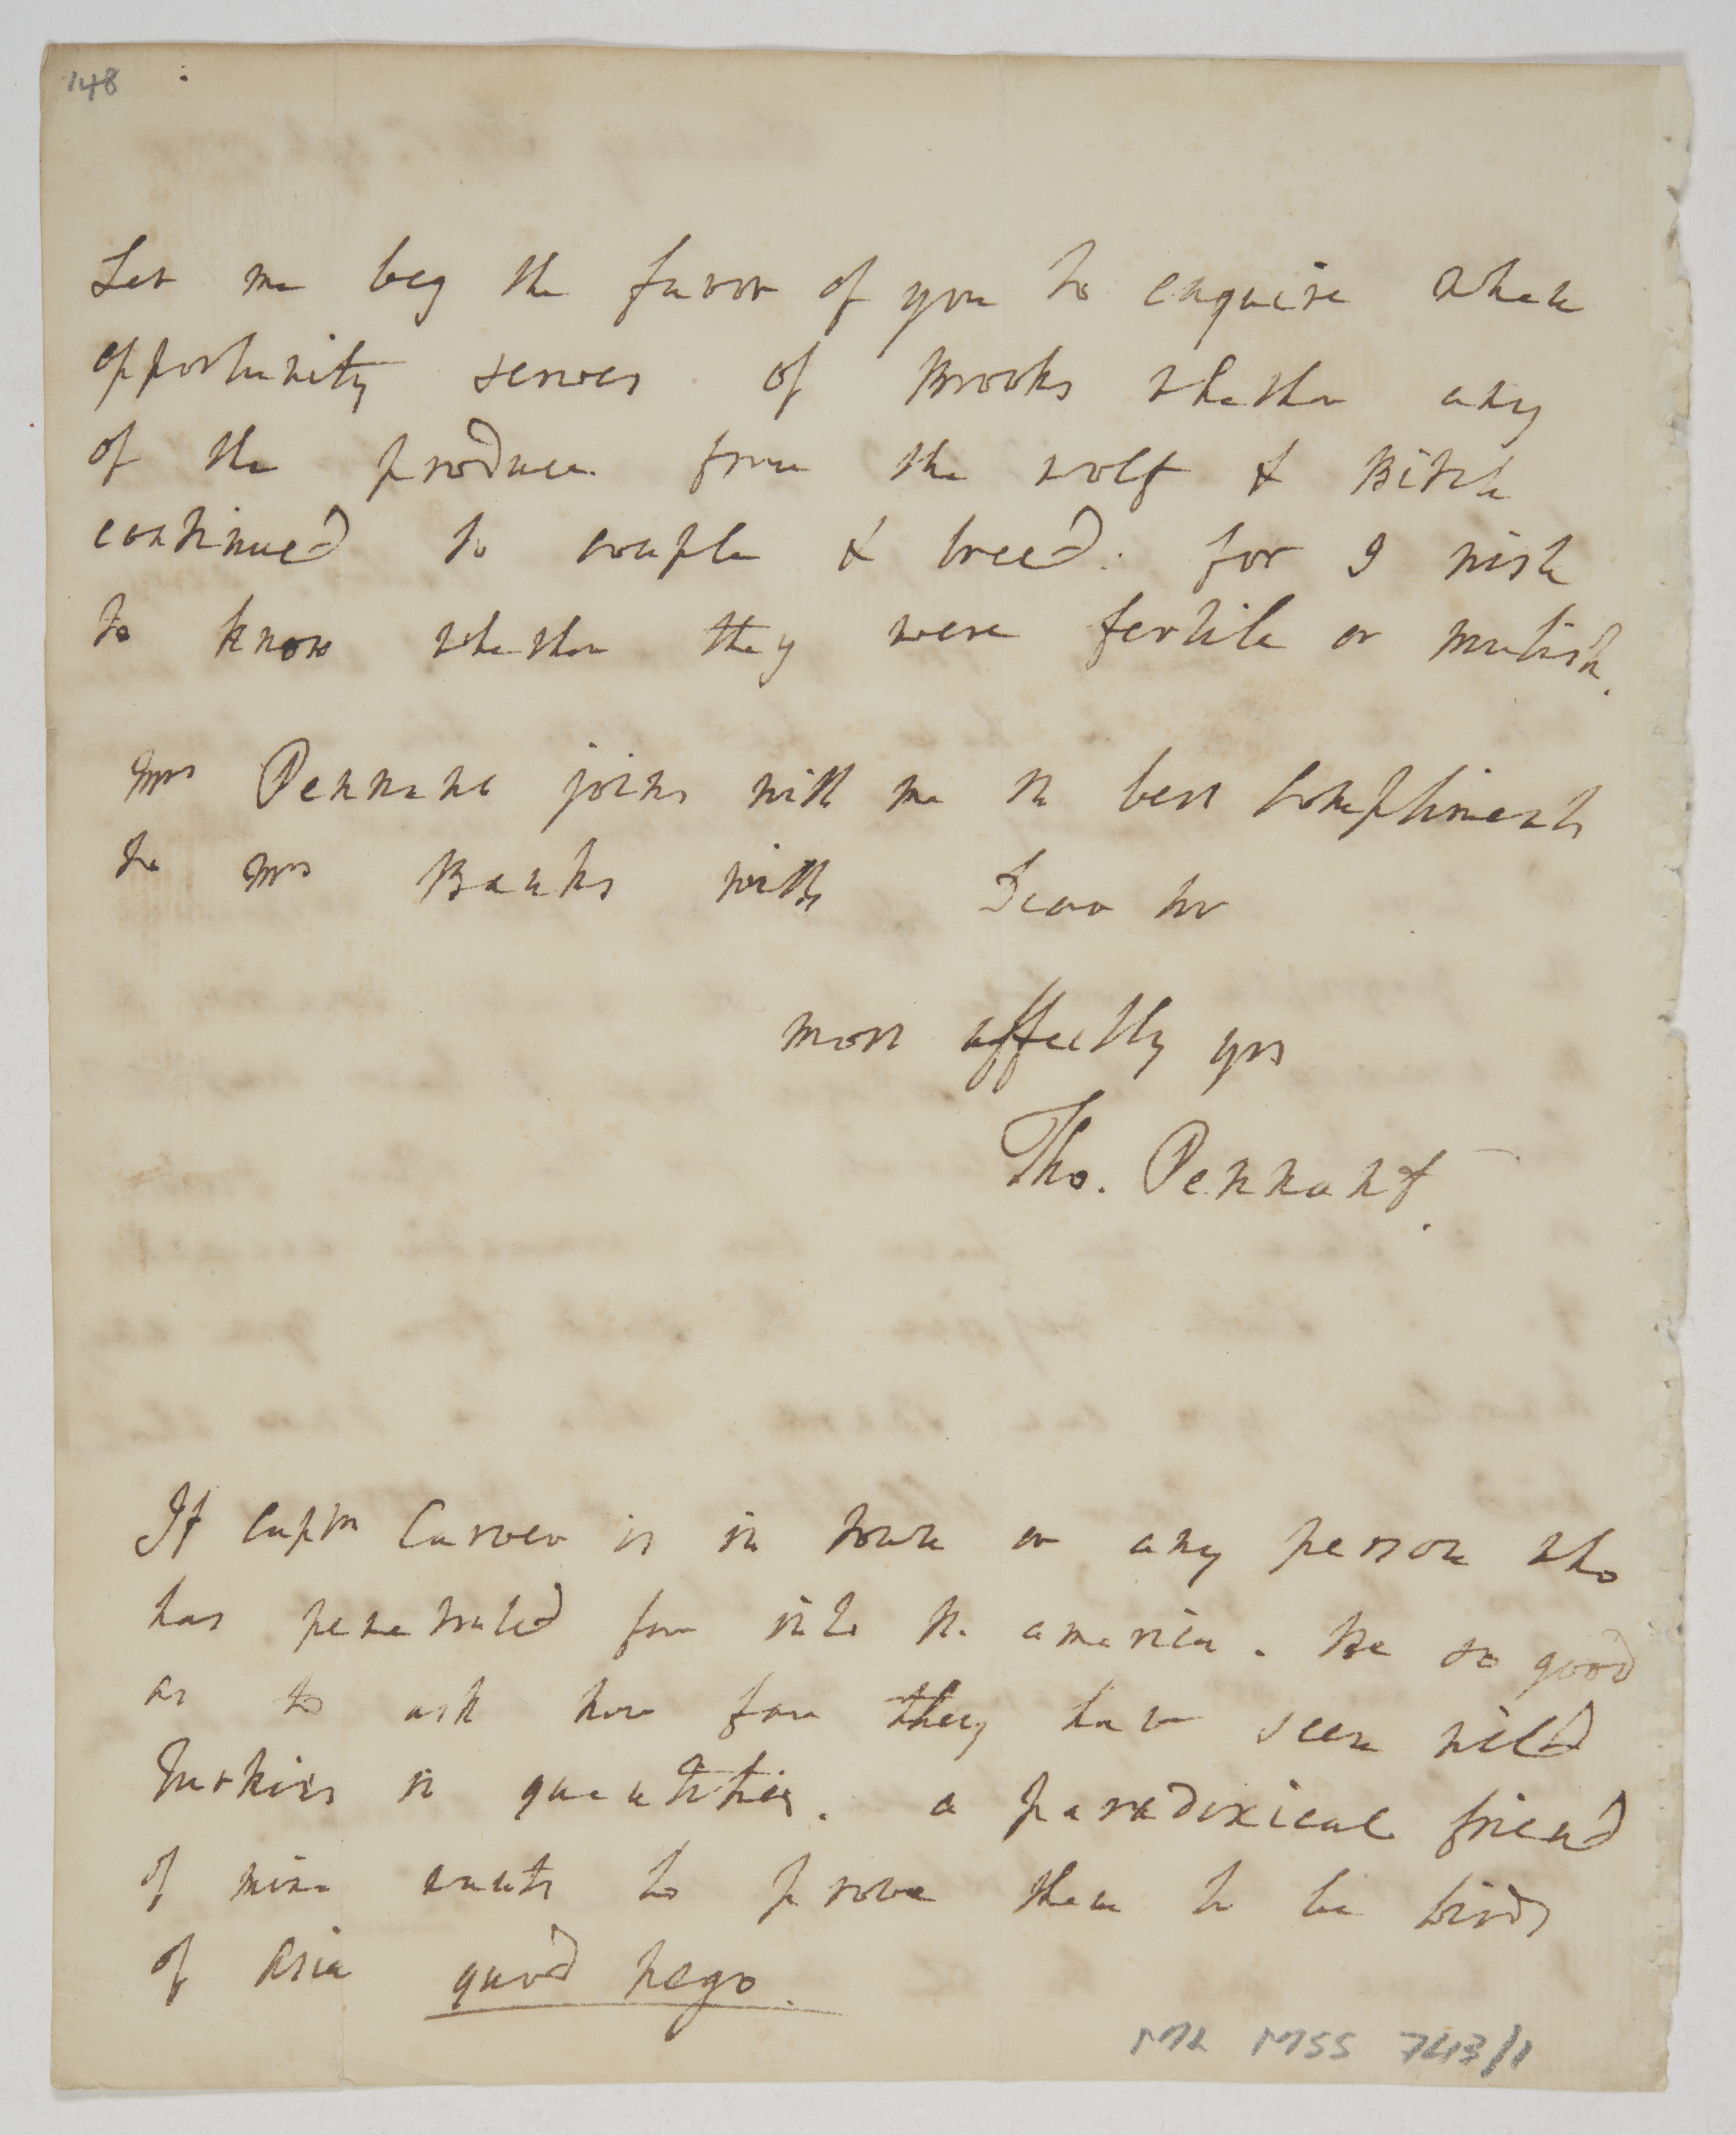 148
Let me beg the favor of you to enquire when
opportunity serves of Brooks whether any
of the produce from the wolf & Bitch
continued to couple & breed. for I wish
to know whether they were fertile or mulish.
Mrs Pennant joins with me in best compliments
to Mrs Banks with Dear Sir
most affectly yrs
Tho. Pennant.
If Captn Carver is in town or any person who
has penetrated far into N. america. Be so good
as to ask how far they have seen wild
Turkies in quantities. a paradoxical friend
of mine wants to prove them to be birds
of Asia quod nego.
ML MSS 743/1